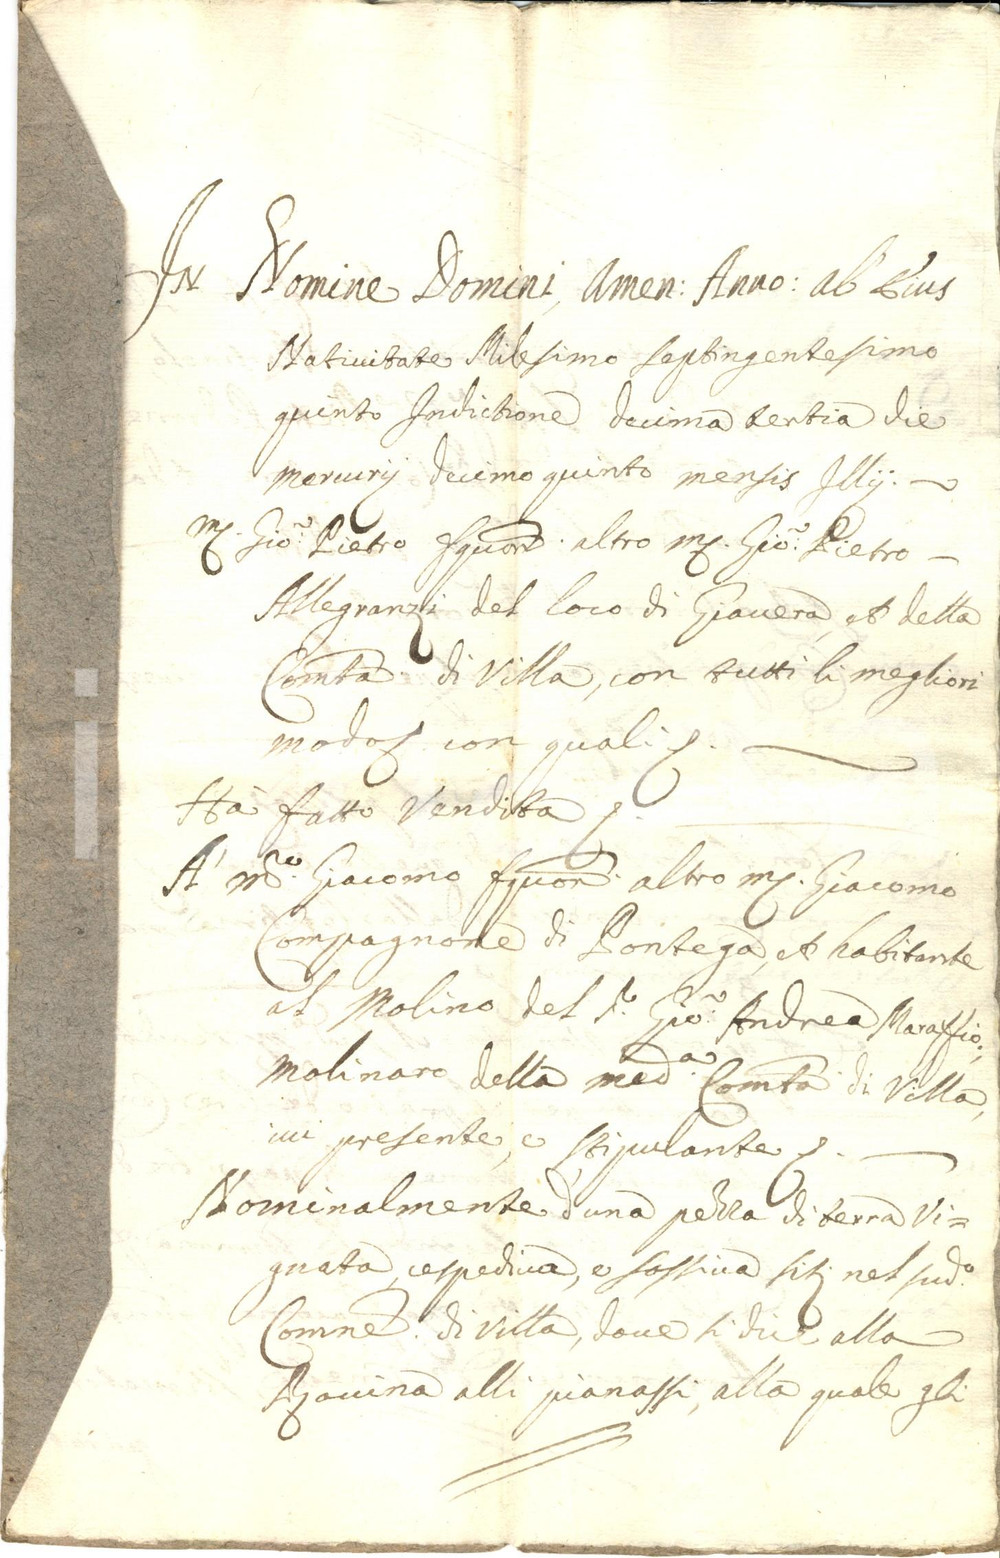 In Nomine Domini, Amen: Anno: ab Eius
Nativitate Milesimo septingentesimo
quinto Indictione decima tertia die
mercurij decimo quinto mensis Jllij.
m. Gio: Pietro fquon. altro m. Gio: Pietro
Allegranzi del loco di Giavera, et della
Comtà di Villa, con tutti li megliori
modo con quali
Hà fatto Vendita
A' mro. Giacomo fquon. altro m. Giacomo
Compagnone di Pontega, et habitante
al Molino del Sr. Gio: Andrea Maraffio,
molinaro della meda. Comtà di Villa,
ivi presente, e stipulante
Nominalmente d'una pezza di terra Vi=
gnata, cespediva, e sassiva siti nel sudo.
Comne. di Villa, dove si dice alla
Rovina alli pianassi, alla quale gli